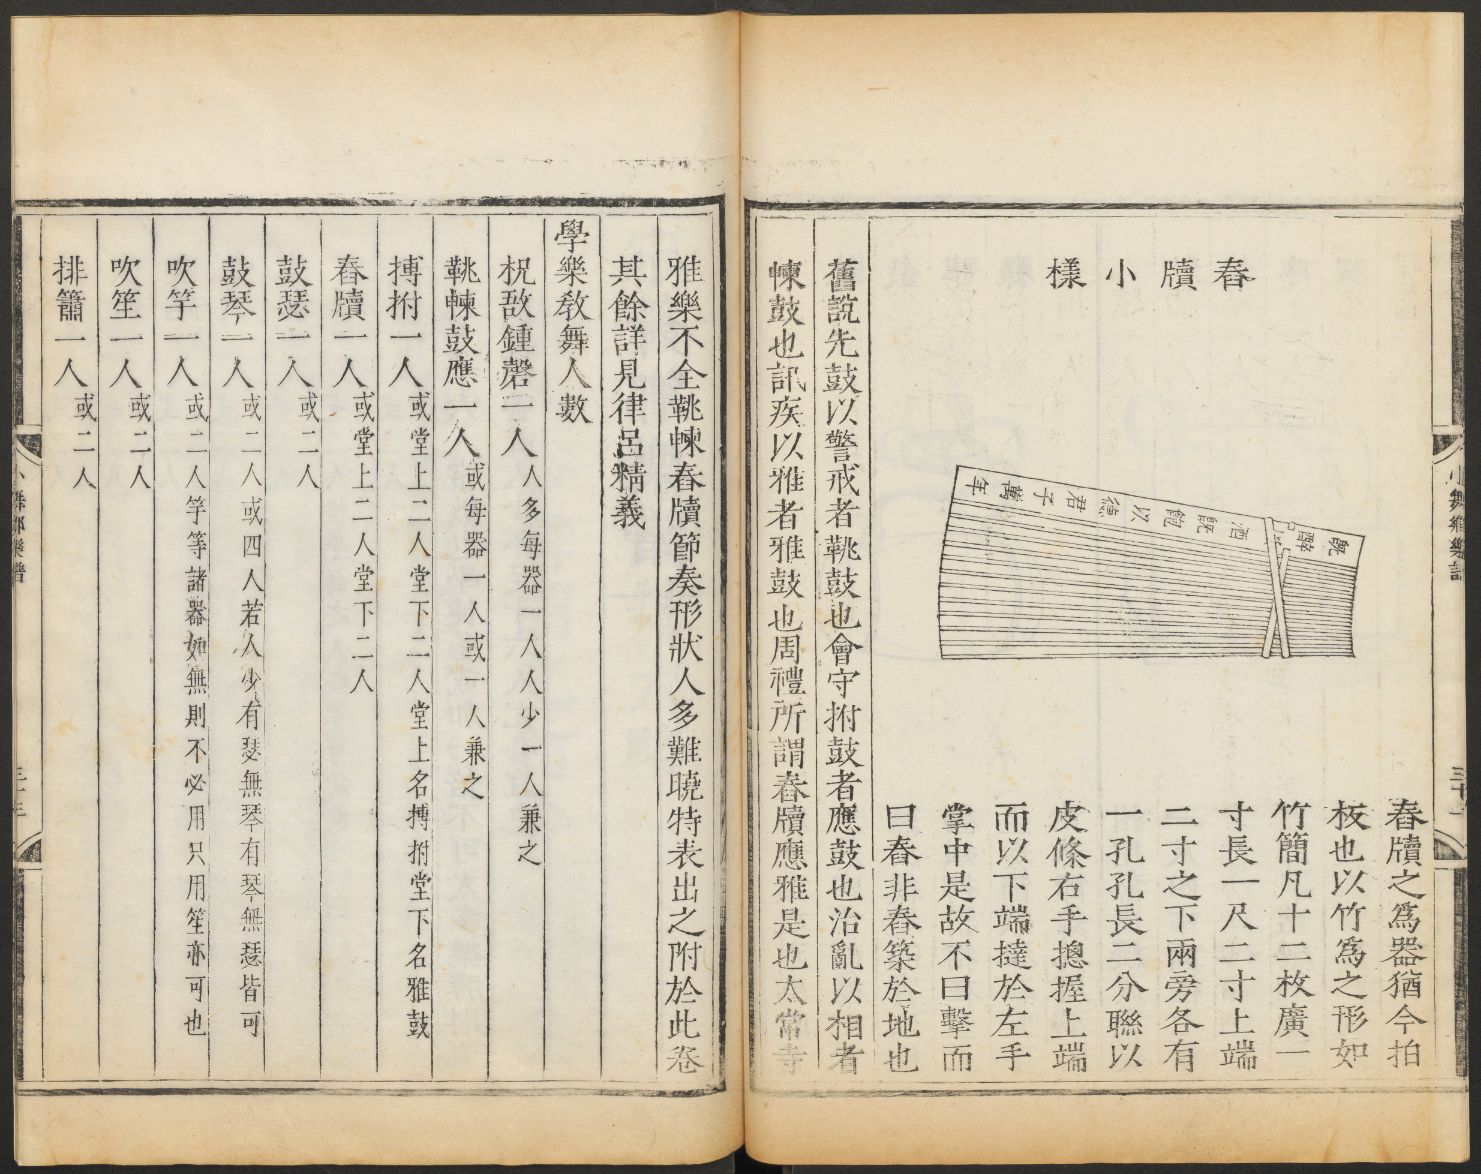 舂牘小樣
既醉以酒既飽以德君子萬年
舂牘之為器猶今拍
板也以竹為之形如
竹簡凡十二枚廣一
寸長一尺二寸上端
二寸之下兩旁各有
一孔孔長二分聯以
皮絛右手摠握上端
而以下端撻於左手
掌中是故不曰擊而
曰舂非舂築於地也
舊説先鼓以警戒者鞉鼓也會守拊鼓者應鼓也治亂以相者
㯥鼓也訊疾以雅者雅鼓也周禮所謂舂牘應雅是也太常寺
小舞鄉樂譜
三十一
雅樂不全鞉㯥舂牘節奏形狀人多難曉特表出之附於此卷
其餘詳見律呂精義
學樂教舞人數
柷敔鍾磬二人人多每器一人人少一人兼之
鞉㯥鼓應一人或每器一人或一人兼之
搏拊一人或堂上二人堂下二人堂上名搏拊堂下名雅鼓
舂牘一人或堂上二人堂下二人
鼓瑟一人或二人
鼓琴一人或二人或四人若人少有瑟無琴有琴無瑟皆可
吹竽一人或二人竽等諸器如無則不必用只用笙亦可也
吹笙一人或二人
排簫一人或二人
小舞鄉樂譜